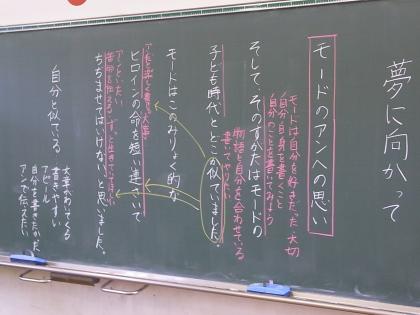 夢に向かって
モードのアンへの思い
モードは自分を好きだった 大切
自分自身を書くこと
自分のことを書いてみよう
そして、そのすがたはモードの
物語と自分を合わせている
書いてやりたい
子ども時代とどこか似ていました。
モードはこのみりょく的な
ヒロインの命を短い連さいで
アンといたい
ちぢませてはいけないと思いました。
自分と似ている
文章がわいてくる
書きやすい
アピール
自分を書きたかった
アンで伝えたい